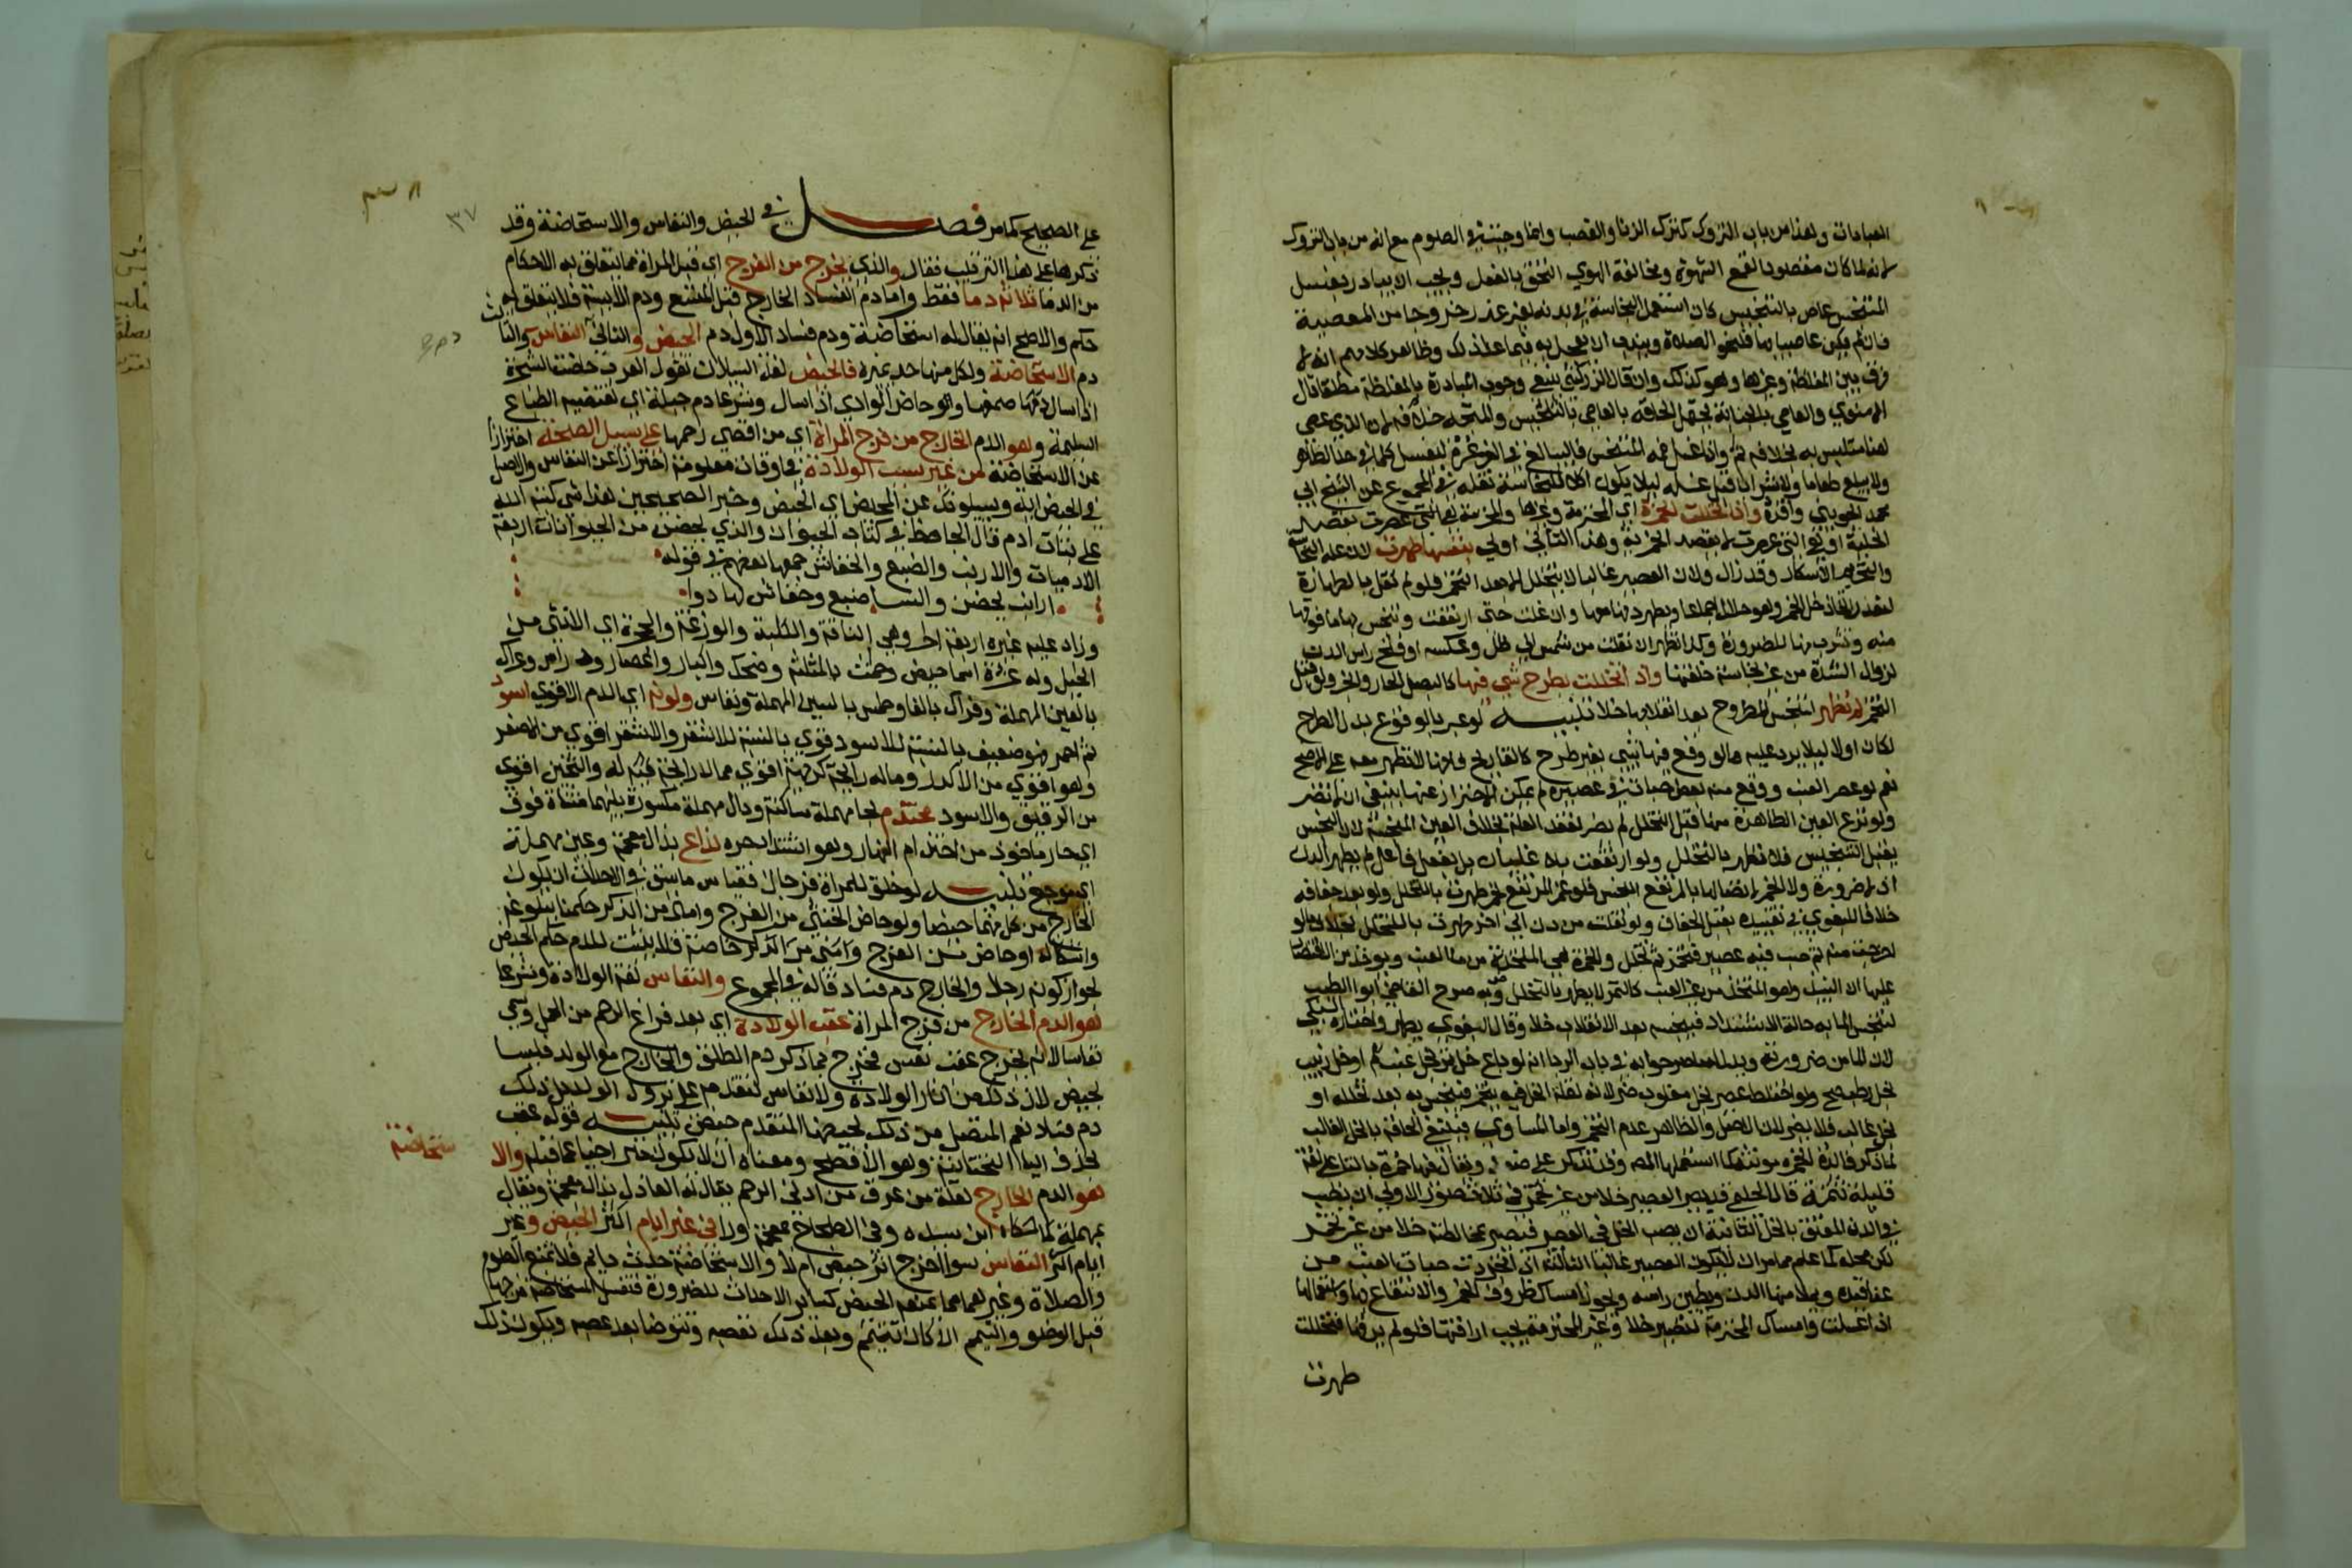 العبادات وهذا من باب التروك كترك الزنا والغصب وانما وجبت في الصوم مع انه من باب التروك
لانه لما كان مقصودا لقمع الشهوة ومخالفة الهوي التحق بالفعل ويجب ان يبادر بغسل
المتنجس عاص بالتنجيس كان استعمل النجاسة في بدنه بغير عذر خروجا من المعصية
فان لم يكن عاصيا به فلنحو الصلاة ويندب ان يعجل به فيما عدا ذلك وظاهر كلامهم انه لا
فرق بين المغلظة وغيرها وهو كذلك وان قال الزركشي ينبغي وجوب المبادرة بالمغلظة مطلقا قال
الاسنوي والعاصي بالجنابة يحتمل الحاقه بالعاصي بالتنجيس والمتجه خلافه لان الذي عصي
هنا متلبس به بخلافه ثم واذا غسل فمه المتنجس فليبالغ في الغرغرة ليغسل كلما في حد الظاهر
ولا يبلع طعاما ولا شرابا قبل غسله ليلا يكون اكلا للنجاسة نقله في المجموع عن الشيخ ابي
محمد الجويني واقره واذا تخللت الخمرة اي المحترمة وغيرها والمحترمة هي التي عصرت بقصد
الخلية او هي التي عصرت لا بقصد الخمرية وهذا الثاني اولي بنفسها طهرت لان علة النجاسة
والتحريم الاسكار وقد زال ولان العصير غالبا لا يتخلل الا بعد التخمر فلو لم نقل بالطهارة
لتعذر اتخاذ خل الخمر وهو حلال اجماعا ويطهر دنها معها وان غلت حتى ارتفعت وتنجس بها ما فوقها
منه وتشرب بها للضرورة وكذا تطهر ان نقلت من شمس الي ظل وعكسه او فتح راس الدن
لزوال الشدة من غير نجاسة خلفتها واذا تخللت بطرح شي فيها كالبصل والخبز الحار ولو قبل
التخمر لم تطهر لتنجس المطروح بعد انقلابها خلا تنبيه لو عبر بالوقوع بدل الطرح
لكان اولى ليلا يرد عليه ما لو وقع فيها شي بغير طرح كالقا ريح فانها لا تطهر معه على الاصح
نعم لو عصر العنب ووقع منه بعض حبات في عصيره لم يمكن الاحتراز عنها ينبغي ان لا تضر
ولو نزع العين الطاهرة منها قبل التخلل لم يضر لفقد العلة بخلاف العين النجسة لان النجس
يقبل التنجيس فلا تطهر بالتخلل ولو ارتفعت بلا غليان بل بفعل فاعل لم يطهر الدن
اذ لا ضرورة ولا الخمر لاتصالها بالمرتفع النجس فلو غمر المرتفع بخمر طهرت بالتخلل ولو بعد جفافه
خلافا للبغوي في تقييده بقبل الجفاف ولو نقلت من دن الى اخر طهرت بالتخلل بخلاف ما لو
اخرجت منه ثم صب فيه عصير فتخمر ثم تخلل والخمرة هي المتخذة من ماء العنب ويوخذ من الاقتصار
عليها ان النبيذ وهو المتخذ من غير العنب كالتمر لا يطهر بالتخلل وبه صرح القاضي ابو الطيب
لتنجس الما به حالة الاشتداد فينجسه بعد الانقلاب خلا وقال البغوي يطهر واختاره السبكي
لان الما من ضرورته ويدل له ما صرحوا به في باب الربا انه لو باع خل تمر بخل عنب او خل زبيب
بخل رطب صح ولو اختلط عصير بخل مغلوب ضر لانه لقلة الخل فيه يتخمر فينجس به بعد تخلله او
بخل غالب فلا يضر لان الاصل والظاهر عدم التخمر واما المساوي فينبغي الحاقه بالخل الغالب
لما ذكر فائدة الخمرة مونثة كما استعملها المص وقد تذكر على ضعف ويقال فيها خمرة بالتا على لغة
قليلة تتمة قال الحليمي قد يصير العصير خلا من غير تخمر في ثلاث صور الاولى ان يصب
في الدن المعتق بالخل الثانية ان يصب الخل في العصير فيصير بمخالطته خلا من غير تخمر
لكن محله كما علم مما مر ان لا يكون العصير غالبا الثالثة اذا تجردت حبات العنب من
عناقيده ويملا منها الدن ويطين راسه ويجوز امساك ظروف الخمر والانتفاع بها واستعمالها
اذا غسلت وامساك المحترمة لتصير خلا وغير المحترمة يجب اراقتها فلو لم يرقها فتخللت
طهرت
٣٧
على الصحيح كما مر فصل في الحيض والنفاس والاستحاضة وقد
ذكرها على هذا الترتيب فقال والذي يخرج من الفرج اي قبل المراة مما يتعلق به الاحكام
من الدما ثلاثة دما فقط واما دم الفساد الخارج قبل التسع ودم الايسة فلا يتعلق به
حكم والاصح انه يقال له استحاضة ودم فساد الاول دم الحيض والثاني النفاس والثالث
دم الاستحاضة ولكل منها حد يميزه فالحيض لغة السيلان تقول العرب حاضت الشجرة
اذا سال صمغها وحاض الوادي اذا سال وشرعا دم جبلة اي تقتضيه الطباع
السليمة وهو الدم الخارج من فرج المراة اي من اقصي رحمها على سبيل الصحة احترازا
عن الاستحاضة من غير سبب الولادة في اوقات معلومة احترازا عن النفاس والاصل
في الحيض اية ويسيلونك عن المحيض اي الحيض وخبر الصحيحين هذا شي كتبه الله
على بنات ادم قال الجاحظ في كتاب الحيوان والذي يحيض من الحيوانات اربعة
الادميات والارنب والضبع والخفاش جمعها بعضهم في قوله
ارانب يحضن والنسا ضبع وخفاش لها دوا
وزاد عليه غيره اربعة اخر وهي الناقة والكلبة والوزغة والحجرة اي الانثى من
الخيل وله عشرة اسما حيض وطمث بالمثلثة وضحك واكبار واعصار ودراس وعراك
بالعين المهملة وفراك بالفا وطمس بالسين المهملة ونفاس ولونه اي الدم الاقوي اسود
ثم احمر فهو ضعيف بالنسبة للاسود قوي بالنسبة للاشقر والاشقر اقوي من الاصفر
وهو اقوي من الاكدر وما له رايحة كريهة اقوي مما لا رايحة له والثخين اقوي
من الرقيق والاسود محتدم بحا مهملة ساكنة ودال مهملة مكسورة بينهما مثناة فوق
اي حار ماخوذ من احتدام النهار وهو اشتداد حره لذاع بذال معجمة وعين مهملة
اي موجع تنبيه لو خلق للمراة فرجان فقياس ما سبق في الاحداث ان يكون
الخارج من كل منهما حيضا ولو حاض الخنثي من الفرج وامنى من الذكر حكمنا ببلوغه
واشكاله او حاض من الفرج وامنى من الذكر خاصة فلا يثبت للدم حكم الحيض
لجواز كونه رجلا والخارج دم فساد قاله في المجموع والنفاس لغة الولادة وشرعا
هو الدم الخارج من فرج المراة عقب الولادة اي بعد فراغ الرحم من الحمل وسمي
نفاسا لانه يخرج عقب نفس فخرج بما ذكر دم الطلق والخارج مع الولد فليسا
بحيض لان ذلك من اثار الولادة ولا نفاس لتقدمه على خروج الولد بل ذلك
دم فساد نعم المتصل من ذلك بحيضها المتقدم حيض تنبيه قوله عقب
بحذف اليا التحتانية وهو الافصح ومعناه ان لا يكون متراخيا عما قبله والا
ستحاضة
هو الدم الخارج لعلة من عرق من ادنى الرحم يقال له العاذل بذال معجمة ويقال
بمهملة كما حكاه ابن سيده وفي الصحاح بمعجمة ورا في غير ايام اكثر الحيض وغير
ايام اكثر النفاس سوا اخرج اثر حيض ام لا والاستحاضة حدث دايم فلا تمنع الصوم
والصلاة وغيرهما مما يمنعه الحيض كساير الاحداث للضرورة فتغسل المستحاضة فرجها
قبل الوضو والتيمم ان كانت تتيمم وبعد ذلك تعصبه وتتوضا بعد عصبه ويكون ذلك